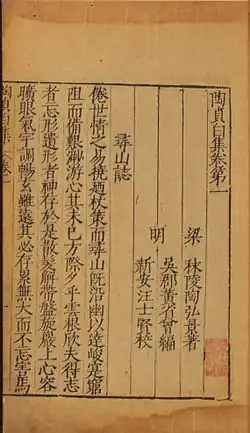 陶貞白集卷第一
梁 秣陵陶弘景著
吳郡黃省曾編
明
新安汪士賢校
尋山誌
倦世情之易撓迺杖策而尋山旣沿幽以達峻寔窮
阻而備艱渺游心其未已方際夕乎雲根欣夫得志
者忘形遺形者神存於是散髮解帶盤旋巖上心容
曠眼氣宇調暢玄雖遠其必存累無大而不忘害馬
陶貞白集 卷一